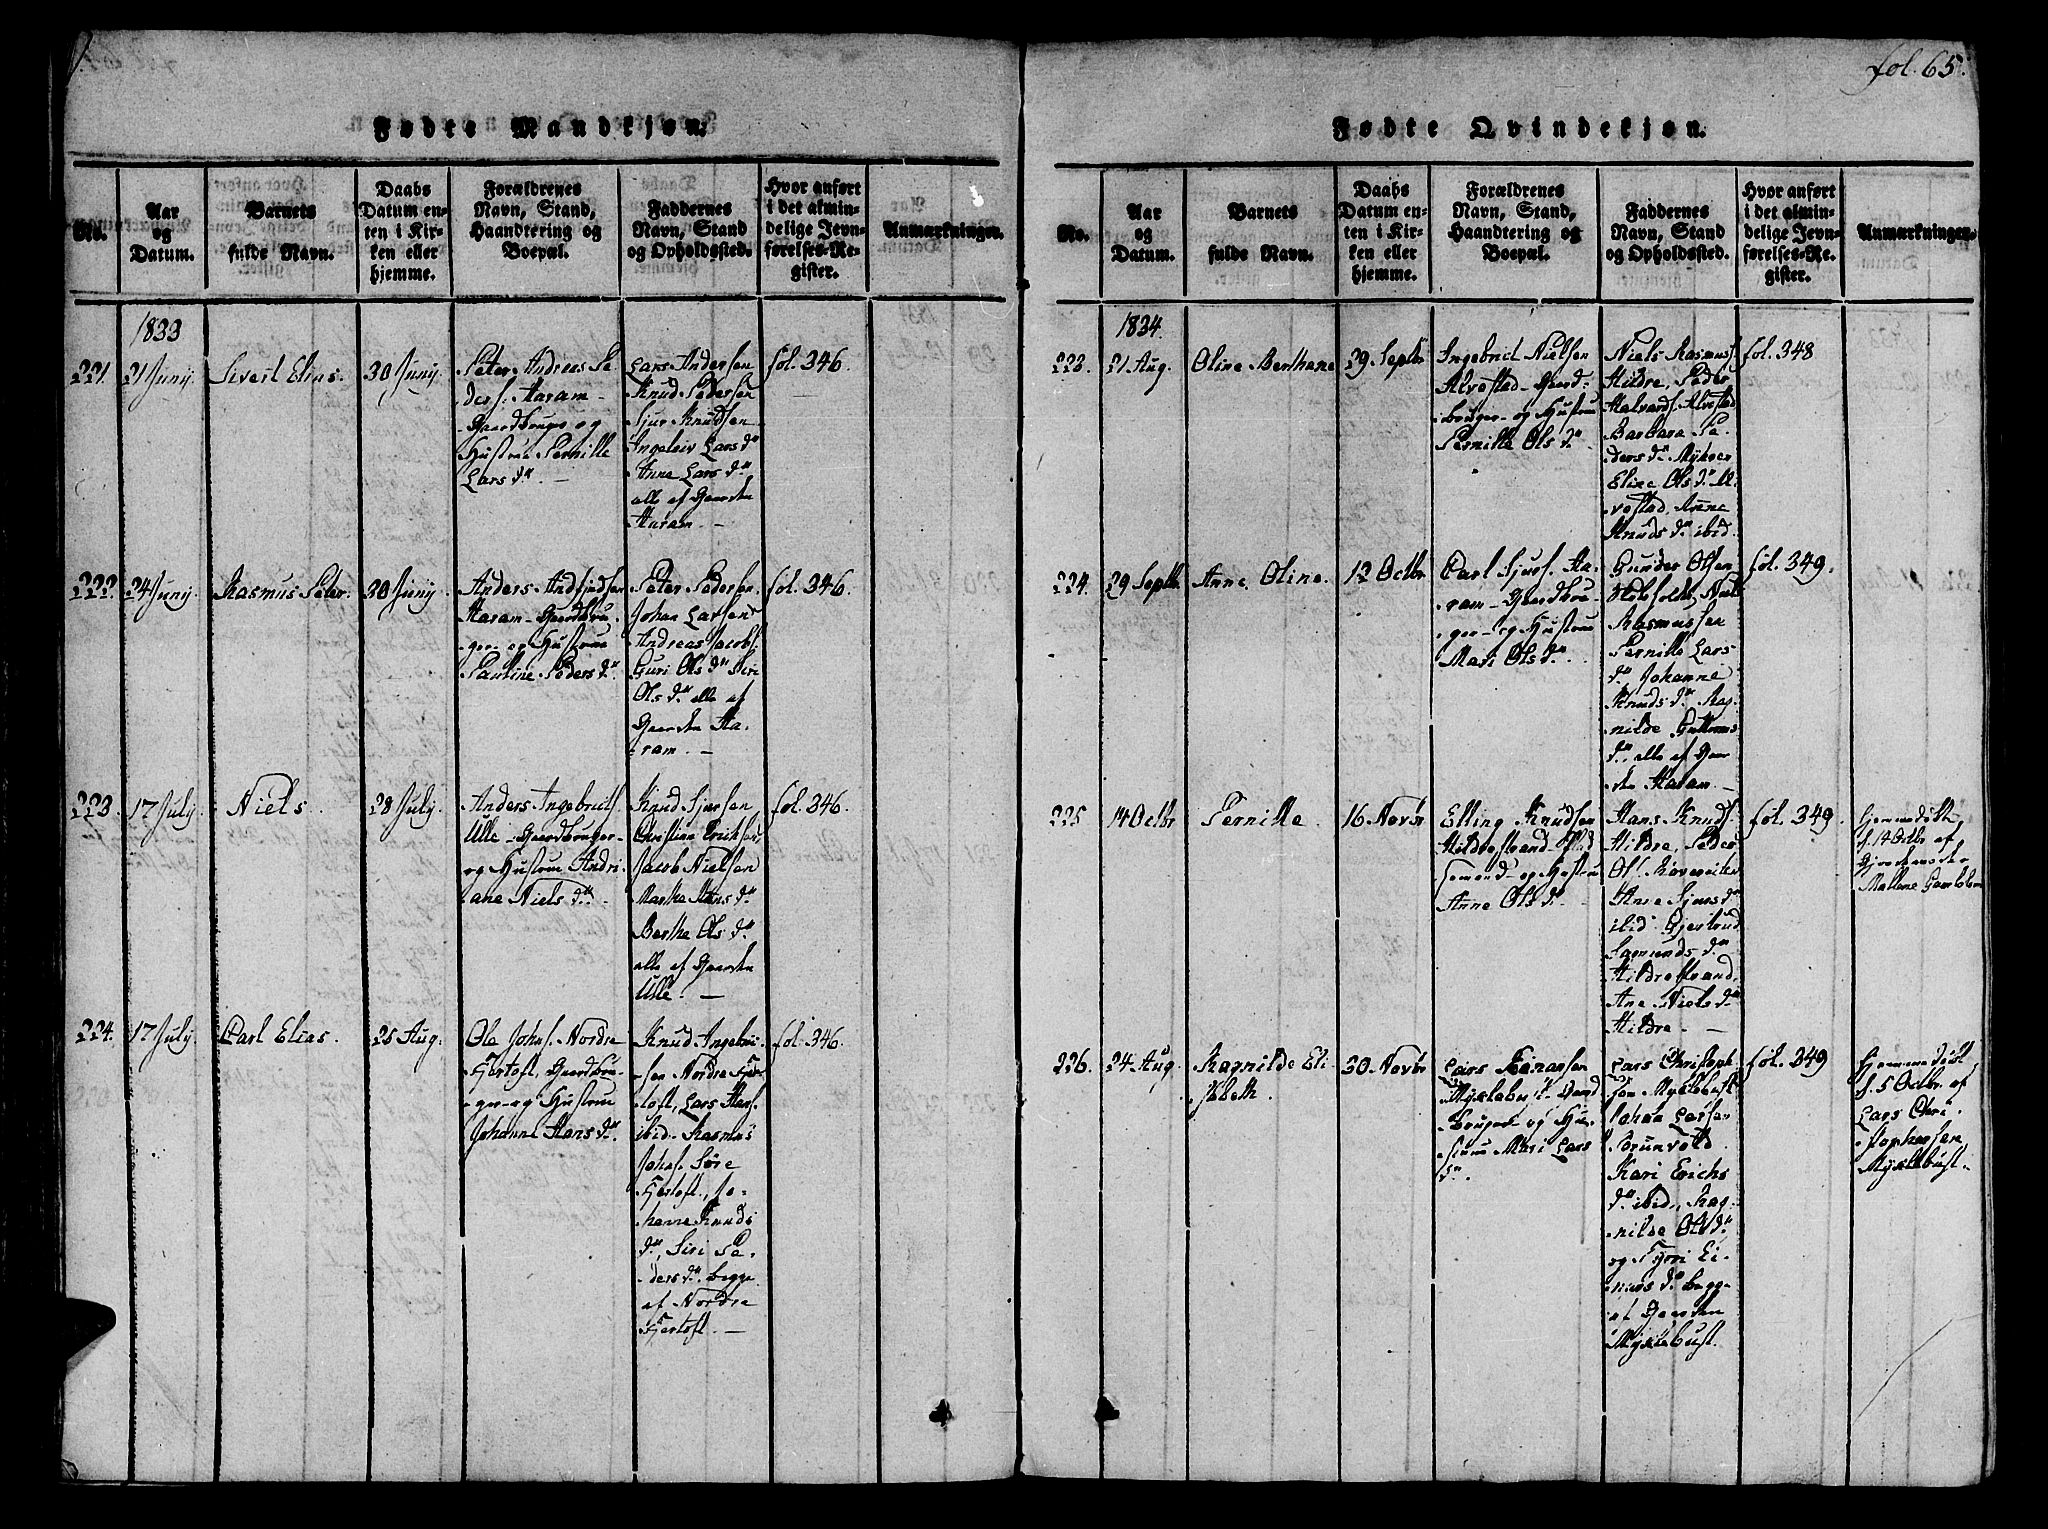 fol. 65.
Fødte Mandkjøn.
No.
Aar
og
Datum.
Barnets
fulde Navn.
Daabs
Datum en-
ten i Kir-
ken eller
hjemme.
Forældrenes
Navn, Stand,
Haandtering og
Boepæl.
Faddernes
Navn, Stand
og Opholdssted.
Hvor anført
i det almin-
delige Jevn-
førelses-Re-
gister.
Anmærkninger.
1833
221. 21 Junij
Sivert Elias.
30 Junij
Peter Andreas Pe-
ders: Haram
Gaardbruger og
Hustrue Pernille
Lars d.r
Lars Andersen
Knud Pedersen
Sjur Knudsen
Ingeleiv Lars d.r
Anne Lars d.r
alle af Gaarden
Haram. –
fol. 346.
222. 24 Junij
Rasmus Peter.
30 Junij
Anders
Haram Gaardbru-
ger og Hustrue
Pauline Peders d.r
Peter Pedersen
Johan Larsen
Andreas Jacobs.
Guri Ols d.r Siri
Ols d.r alle af
Gaarden Ha-
ram. –
fol. 346.
223. 17 July
Niels.
28 July
Anders Ingebrits.
Ulle Gaardbruger
og Hustrue Andri-
ane Niels d.r
Knud Sjursen
Christian Erichsen
Jacob Nielsen
Marthe Hans d.r
Berthe Ols d.r
alle af Gaarden
Ulle. –
fol. 346.
224. 17 July
Carl Elias.
25 Aug.
Ole Johns. Nordre
Fjertoft, Gaardbru-
ger og Hustrue
Johanne Hans d.r
Knud Ingebrit-
sen Nordre Fjer-
toft, Lars Hans.
ibid. Rasmus
Johns. Søre
Fjertoft, Jo-
hanne Knuds
d.r, Siri Pe-
ders d.r begge
af Nordre
Fjertoft. –
fol. 346.
Fødte Qvindekjøn.
No.
Aar
og
Datum.
Barnets
fulde Navn.
Daabs
Datum en-
ten i Kir-
ken eller
hjemme.
Forældrenes
Navn, Stand,
Haandtering og
Boepæl.
Faddernes
Navn, Stand
og Opholdssted.
Hvor anført
i det almin-
delige Jevn-
førelses-Re-
gister.
Anmærkninger.
1834.
223. 21 Aug.
Oline Berthane
29 Septbr
Ingebrict Nielsen
Alvestad Gaard-
bruger og Hustrue
Pernille Ols d.r
Niels Rasmuss.
Hildre, Peder
Halvards. Alvestad
Barbara Pe-
ders d.r
Eline Ols d.r Al-
vestad, Anne
Knuds d.r ibid.
fol. 348
224. 29 Septbr
Anne Oline.
12 Octbr
Carl Sjurs. Ha-
ram Gaardbru-
ger og Hustrue
Mari Ols d.r
Gunder Olsen
Niels
Rasmussen
Pernille Lars
d.r Johanne
Knuds d.r Rag-
nilde Guttorms
d.r, alle af Gaar-
den Haram. –
fol. 349.
225 14 Octbr
Pernille
16 Novbr
Elling Knudsen
Hildrestrand
og Hustrue
Anne Ols d.r
Hans Knuds.
Hildre, Peder
Ols.
Anne Sjurs d.r
ibid Gjertrud
Sagmunds d.r
Hildrestrand,
Ane Niels d.r
Hildre. –
fol. 349.
Hjemmedøbt
d. 14 Octbr af
Gjordemoder
Malene
226. 24 Aug.
Ragnilde Eli-
sabeth.
30 Novbr
Lars Einarsen
Myklebust Gaard-
bruger og Hu-
strue Mari Lars
d.r
Lars Christoph-
sen Myklebust
Johan Larsen
Brunvold
Kari Erichs
d.r ibid., Rag-
nilde Ols d.r
og Fyrri Ei-
nars d.r begge
af Gaarden
Myklebust.
fol. 349
Hjemmedøbt
d. 5 Octbr. af
Lars Chri-
stophersen
Myklebust.